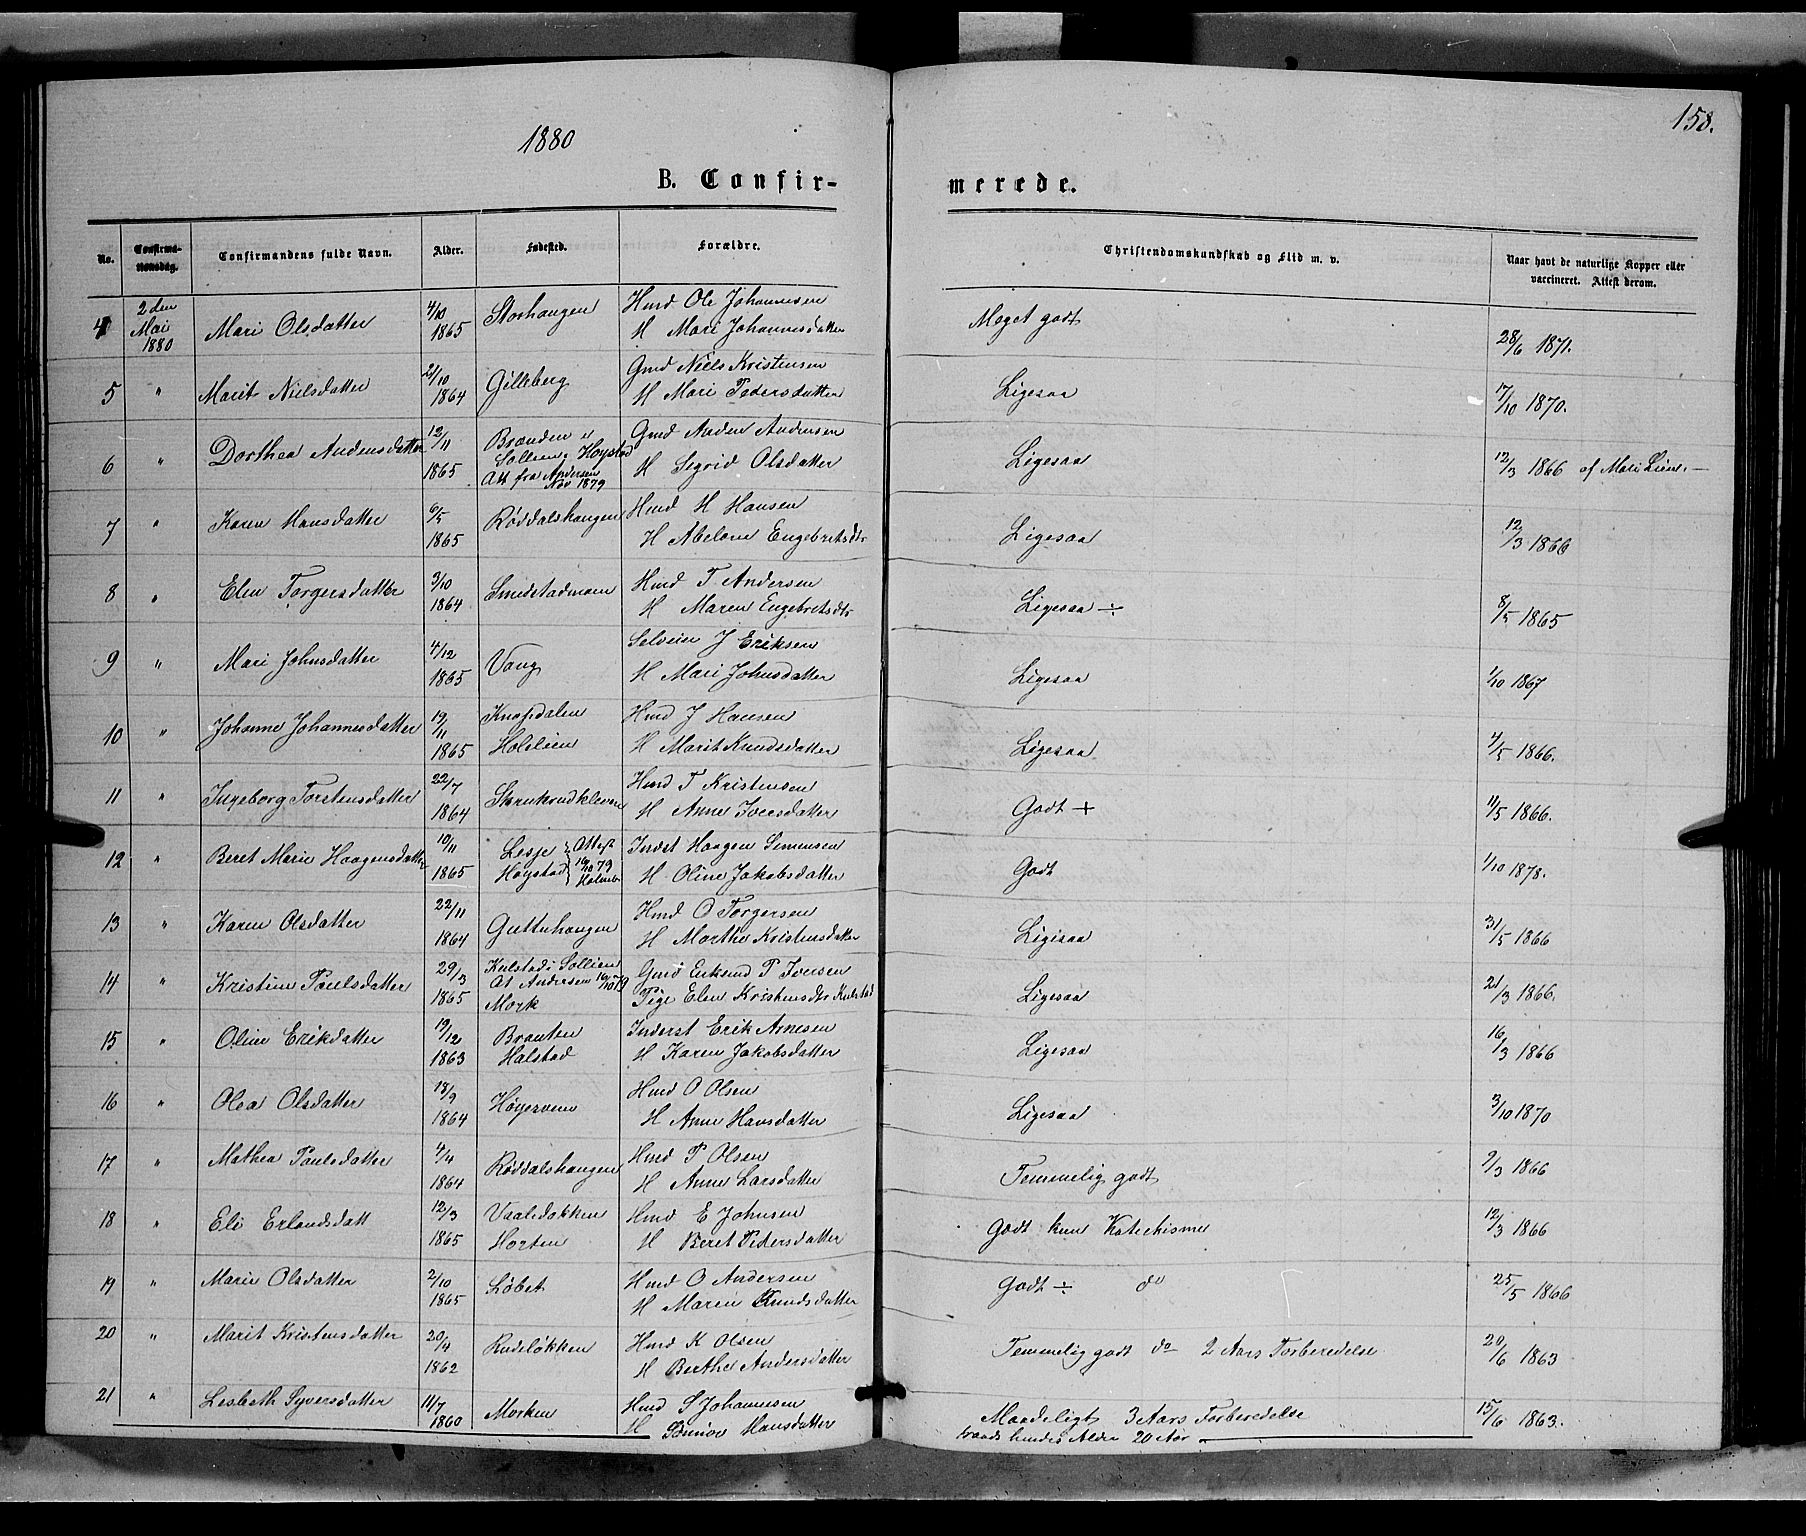 158.
1880
B. Confirmerede.
No. Confirmationsdag. Confirmandens fulde Navn. Alder. Fødested. Forældre. Christendomskundskab og Flid m. v. Naar havt de naturlige Kopper eller vaccineret. Attest derom.
4 2den Mai 1880 Mari Olsdatter 4/10 1865 Storhaugen Hmd Ole Johannesen H Mari Johannesdatter Meget godt 28/6 1871.
5 " Marit Nielsdatter 21/10 1864 Gilleberg Gmd Niels Kristensen H Mari Pedersdatter Ligesaa 17/10 1870.
6 " Dorthea Andensdatter 12/11 1865 Brænden i Sollien, Høystad Att fra Andersen Nov 1879 Gmd Anden Andensen H Sigrid Olsdatter Ligesaa 12/3 1866 af Mari Lien. —
7 " Karen Hansdatter 6/5 1865 Røddalshaugen Hmd H Hansen H Abelone Engebretsdtr Ligesaa 12/3 1866
8 " Elen Torgersdatter 3/10 1864 Smidstadmoen Hmd T Andersen H Maren Engebretsdtr Ligesaa ÷ 8/5 1865
9 " Mari Johnsdatter 4/12 1865 Vang Selveier J Eriksen H Mari Johnsdatter Ligesaa 1/10 1867
10 " Johanne Johannesdatter 19/11 1865 Knapdalen Holelien Hmd J Hansen H Marit Knudsdatter Ligesaa 4/5 1866.
11 " Ingeborg Torstensdatter 22/7 1864 Hmd T Kristensen H Anne Iversdatter Godt + 11/5 1866.
12 " Beret Marie Haagensdatter 10/11 1865 Lesje Høystad Attest 16/10 79 Indst Haagen Simensen H Oline Jakobsdatter Godt 1/10 1878.
13 " Karen Olsdatter 22/11 1864 Guttuhaugen Hmd O Torgersen H Marthe Kristensdatter Ligesaa 31/5 1866
14 " Kristine Paulsdatter 29/3 1865 Kulstad i Sollien At Andersen 16/10 79 Mork Gmd Enkemd P Iversen Pige Elen Kristensdtr Kulstad Ligesaa 21/3 1866.
15 " Oline Erikdatter 19/12 1863 Braaten Halstad Inderst Erik Arnesen H Karen Jakobsdatter Ligesaa 16/3 1866
16 " Olea Olsdatter 18/9 1864 Høyerveen Hmd O Olsen H Anne Hansdatter Ligesaa 3/10 1870
17 " Mathea Paulsdatter 4/4 1864 Røddalshaugen Hmd P Olsen H Anne Larsdatter Temmelig godt 9/3 1866
18 " Eli Erlandsdatt 12/3 1865 Vaaleløkken Horten Hmd E Johnsen H Beret Pedersdatter Godt kun Katechisme 12/3 1866
19 " Marie Olsdatter 2/10 1865 Løbet Hmd O Andersen H Maren Knudsdatter Godt ÷ do 25/5 1866
20 " Marit Kristensdatter 20/4 1862 Rudeløkken Hmd K Olsen H Berthe Andersdatter Temmelig godt do 2 Aars Forberedelse 20/6 1863
21 " Lisbeth Syversdatter 11/7 1860 Morken Hmd S Johannesen H Hansdatter Maadeligt 3 Aars Forberedelse trods hendes Alder 20 Aar 15/6 1863.